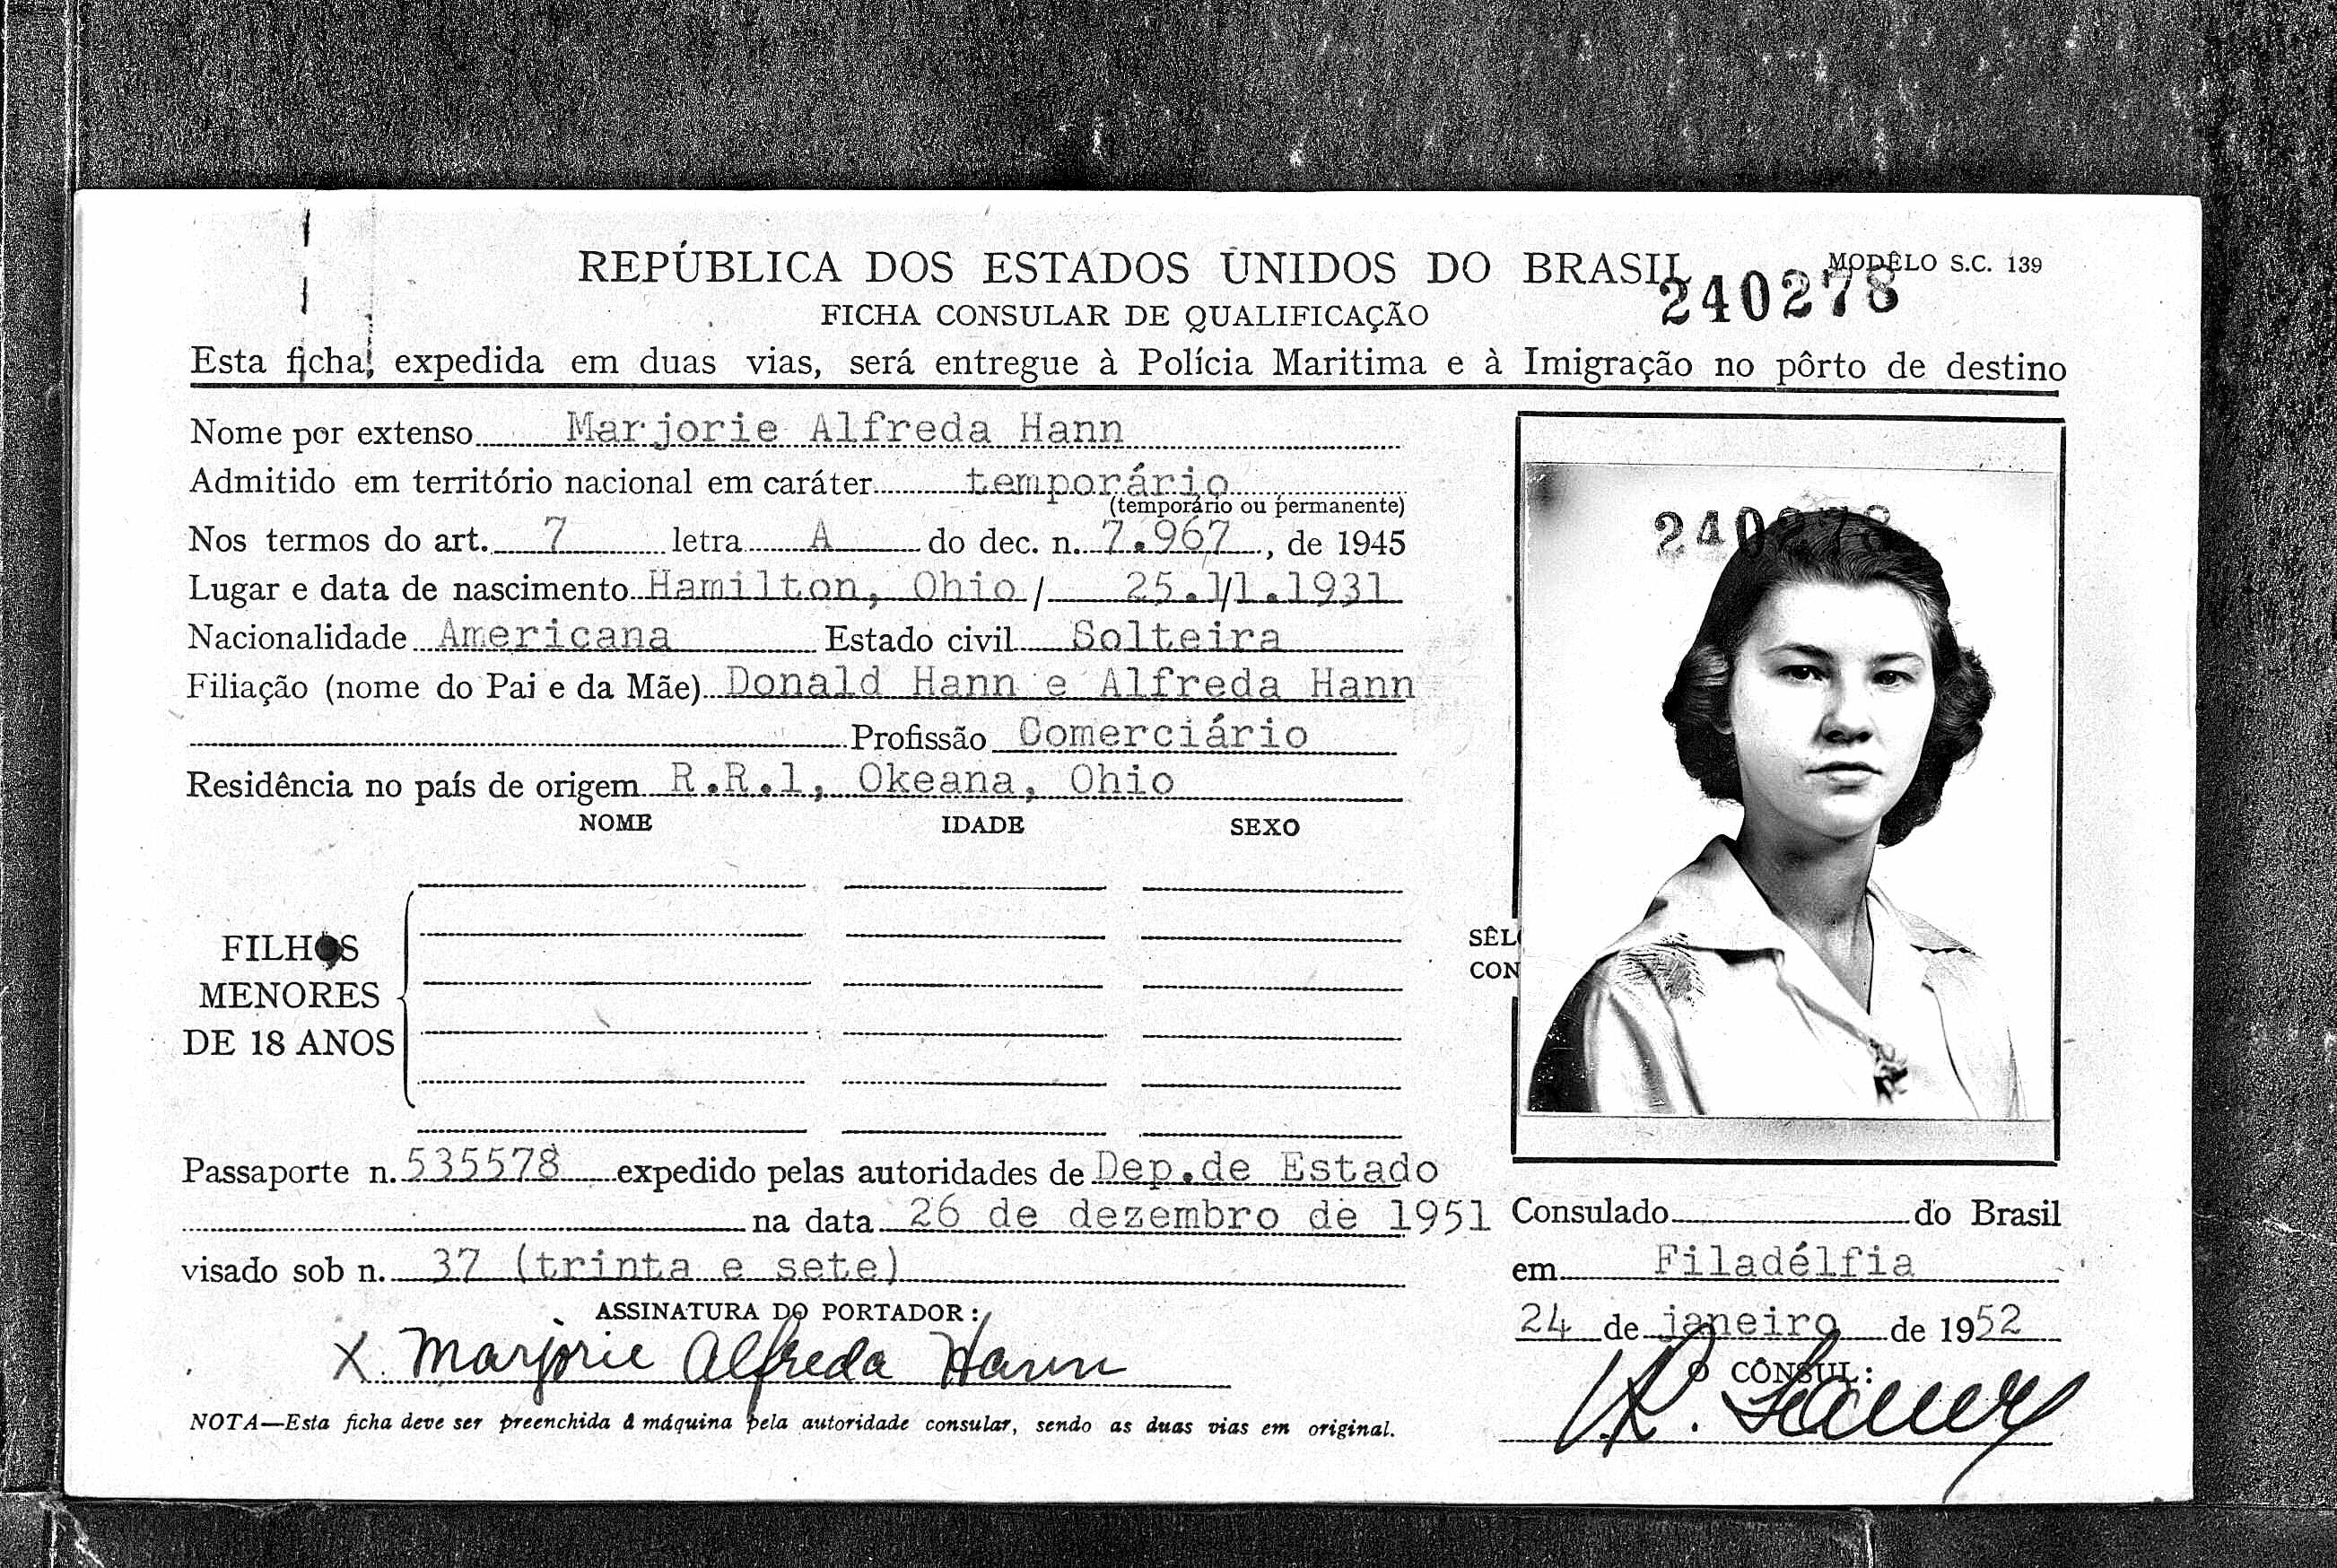 REPÚBLICA DOS ESTADOS UNIDOS DO BRASIL
MODÊLO S.C. 139
240278
FICHA CONSULAR DE QUALIFICAÇÃO
Esta ficha, expedida em duas vias, será entregue à Polícia Maritima e à Imigração no pôrto de destino
Nome por extenso Marjorie Alfreda Hann
Admitido em território nacional em caráter temporário
(temporário ou permanente)
Nos termos do art. 7 letra A do dec. n. 7.967, de 1945
Lugar e data de nascimento Hamilton, Ohio / 25.1/1.1931
Nacionalidade Americana Estado civil Solteira
Filiação (nome do Pai e da Mãe) Donald Hann e Alfreda Hann
Profissão Comerciário
Residência no país de origem R.R.1, Okeana, Ohio
NOME IDADE SEXO
FILHOS
MENORES
DE 18 ANOS
240278
Passaporte n. 535578 expedido pelas autoridades de Dep.de Estado
na data 26 de dezembro de 1951
visado sob n. 37 (trinta e sete)
ASSINATURA DO PORTADOR:
X Marjorie Alfreda Hann
NOTA—Esta ficha deve ser preenchida à máquina pela autoridade consular, sendo as duas vias em original.
Consulado do Brasil
em Filadélfia
24 de janeiro de 1952
O CÔNSUL: